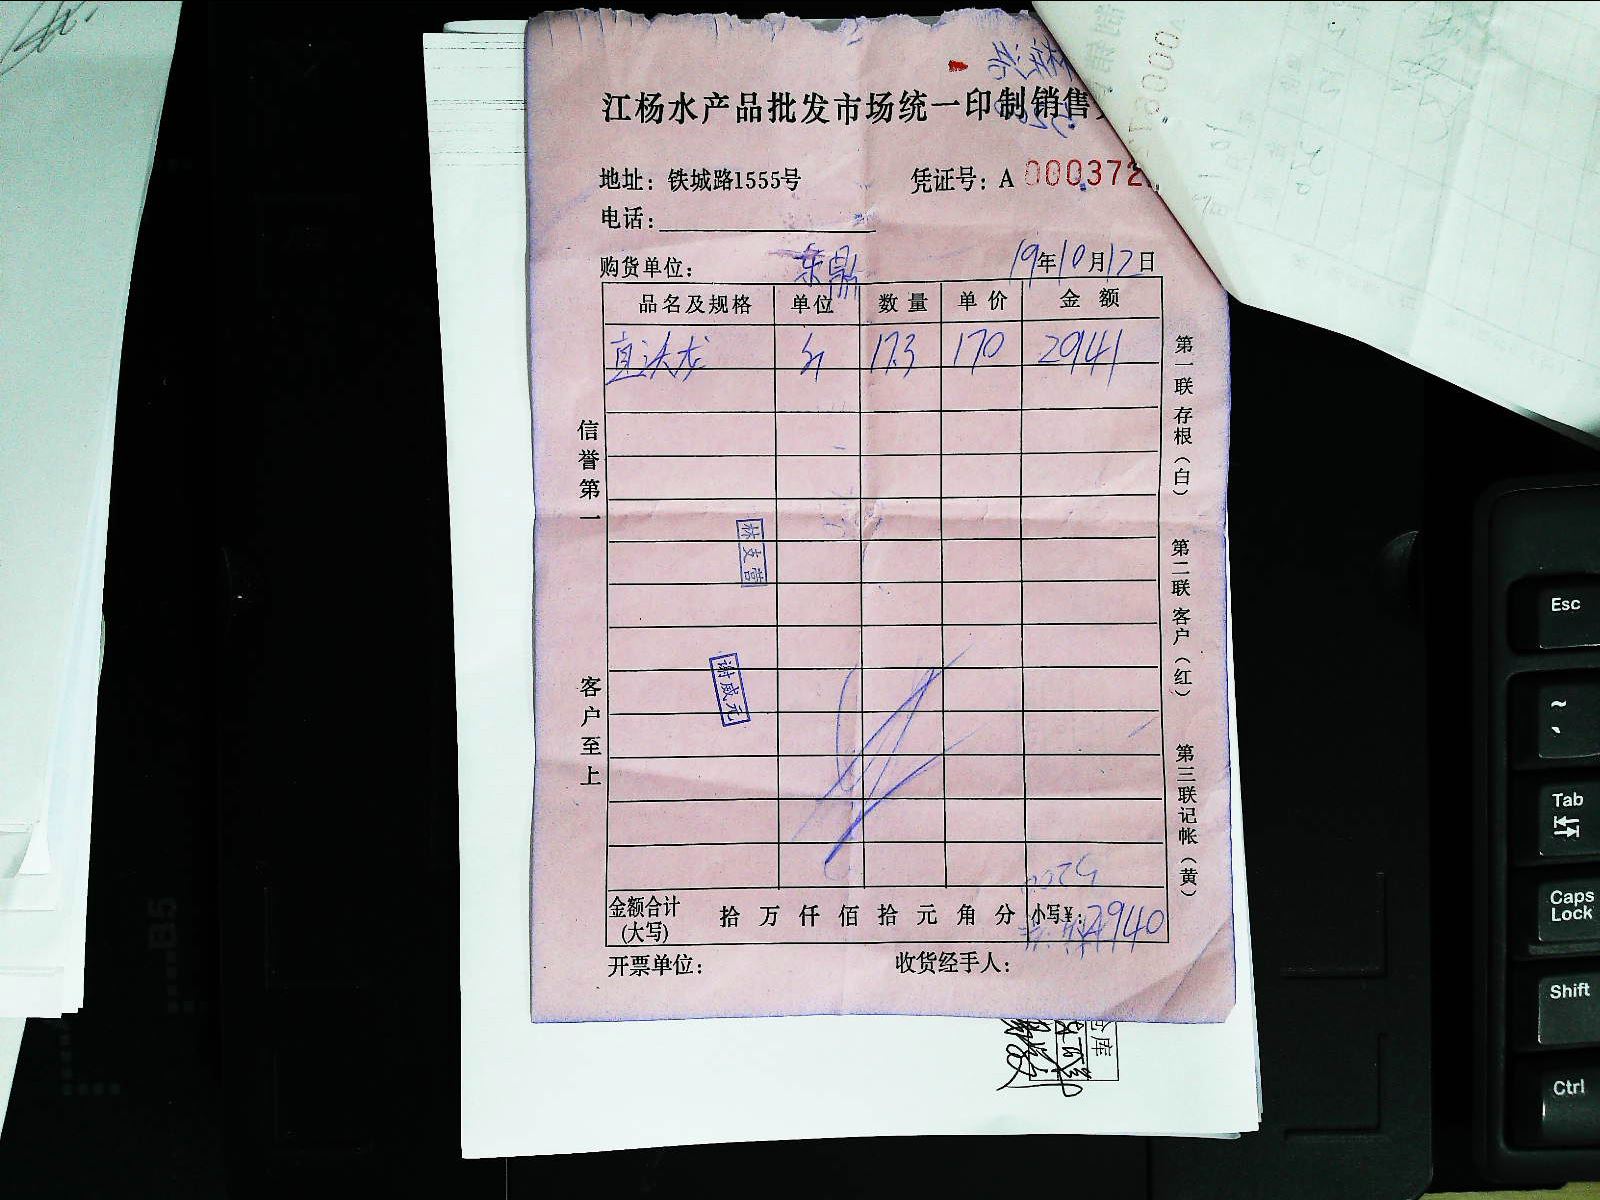 江杨水产品批发市场统一印制销售
地址：铁城路1555号 凭证号：A 000372
电话：
购货单位： 东鼎 19年10月12日
品名及规格 单位 数量 单价 金额
直法龙 斤 17.3 170 2941
信誉第一
客户至上
第一联存根（白）
第二联客户（红）
第三联记帐（黄）
林支营
谢威元
金额合计(大写) 拾 万 仟 佰 拾 元 角 分 小写¥：2940
开票单位： 收货经手人：
仓库
B5
Esc
~
Tab
Caps Lock
Shift
Ctrl